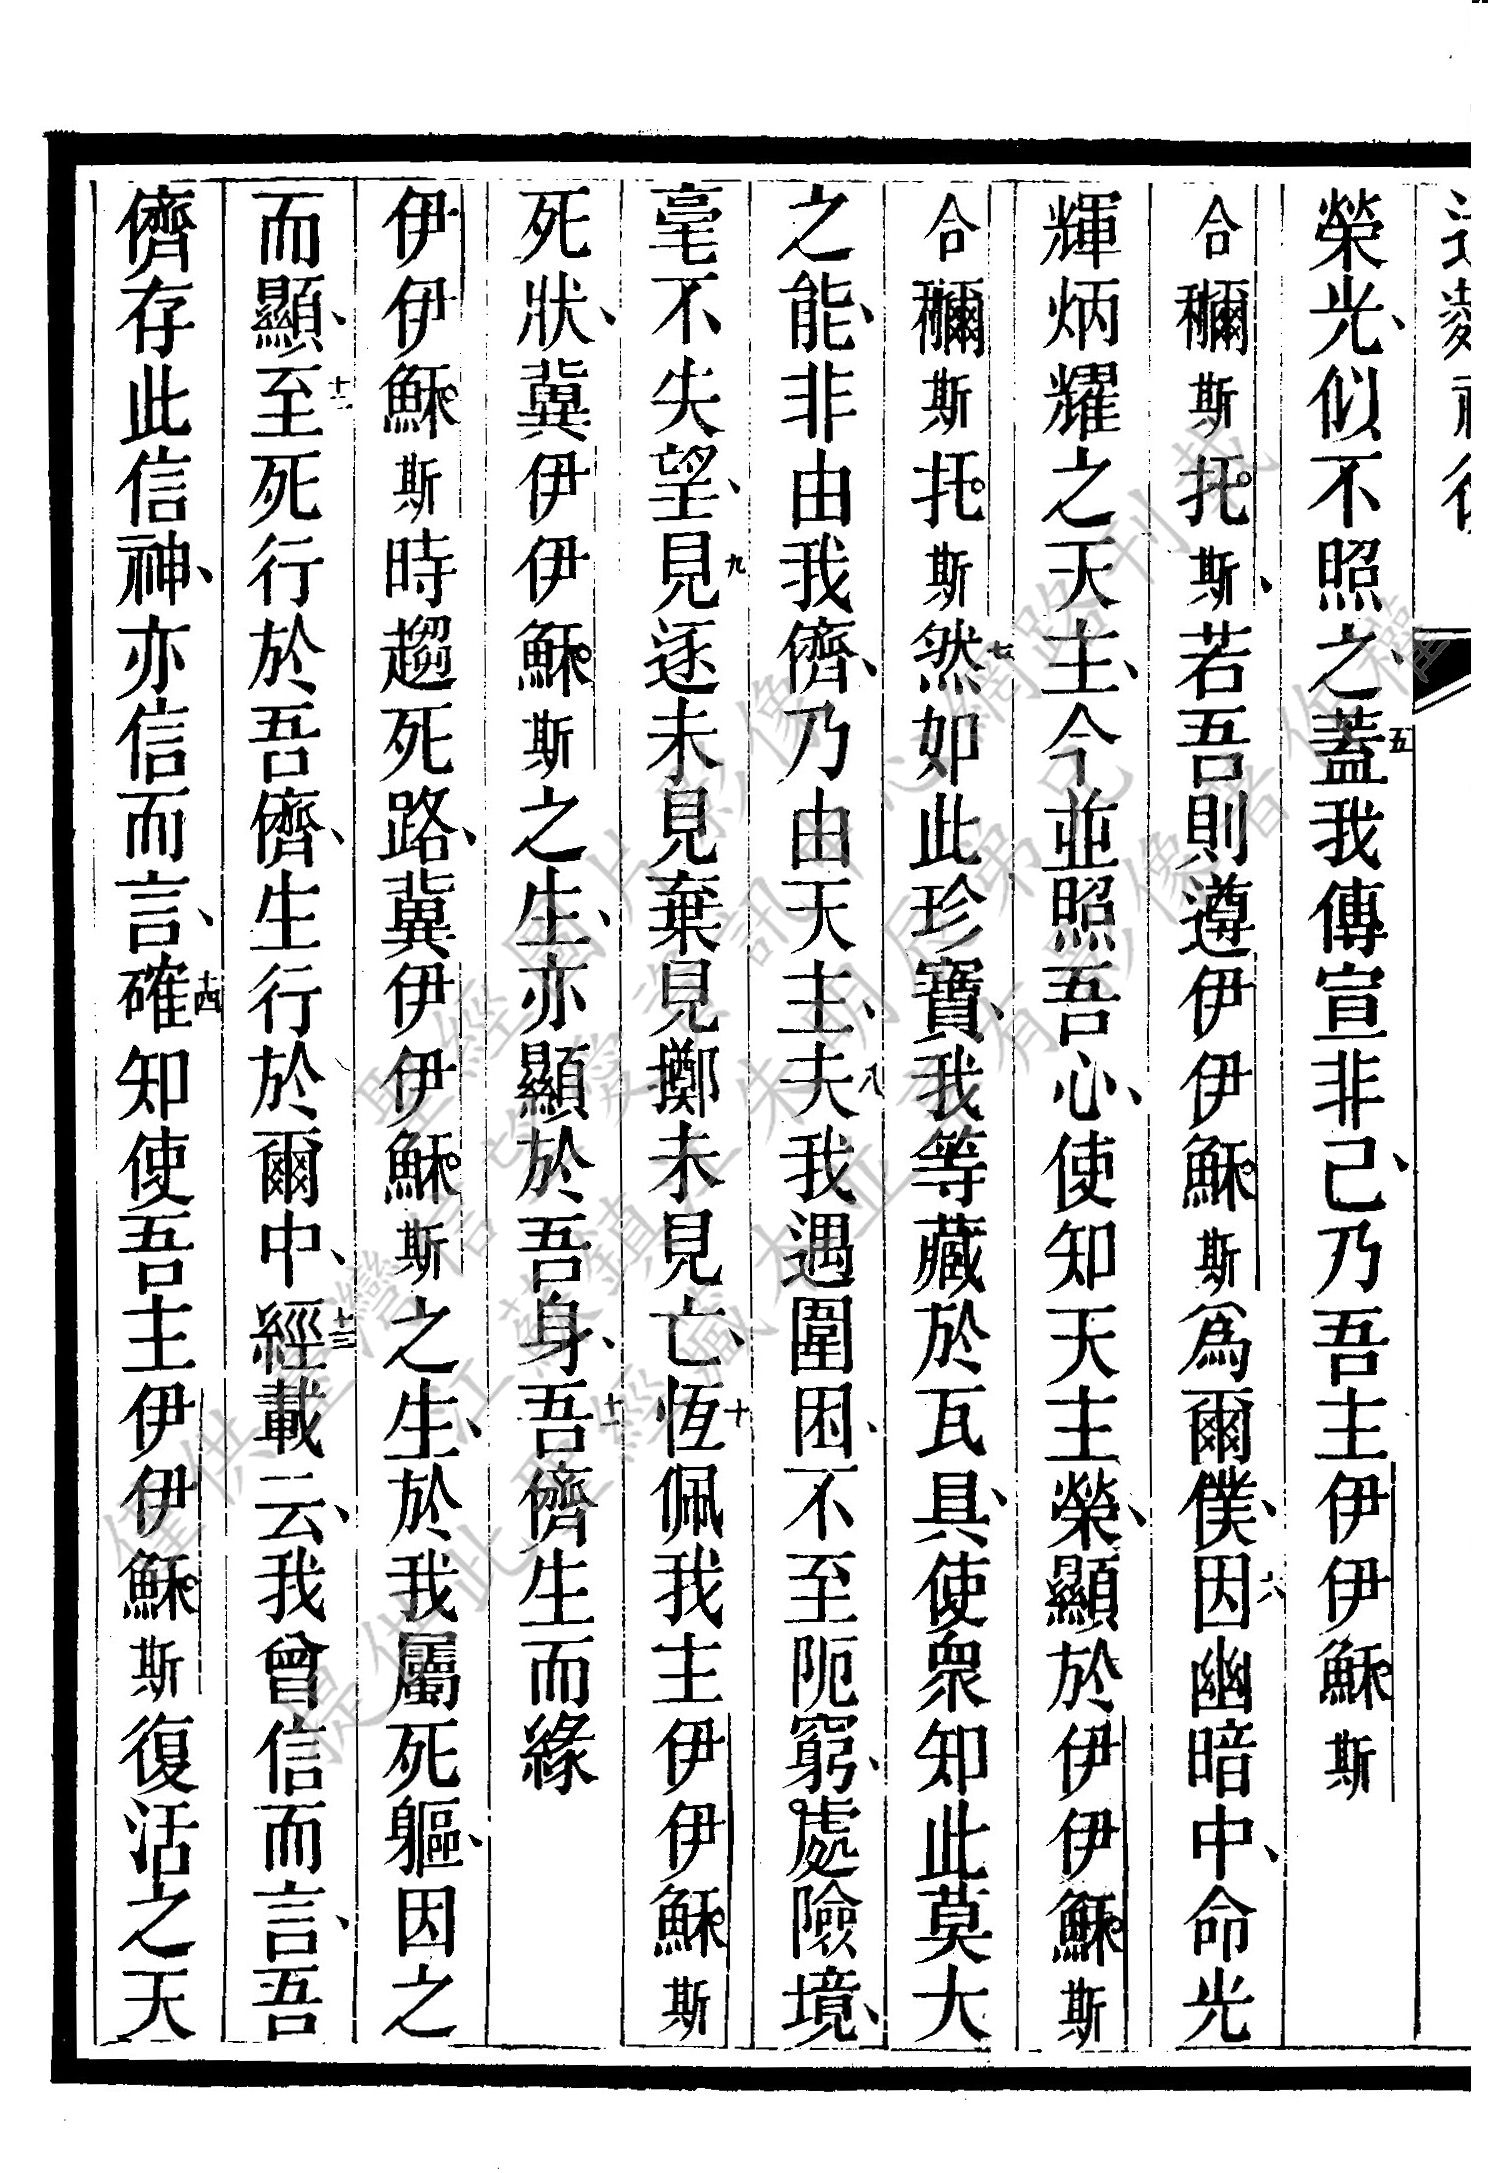 榮光、似不照之、五蓋我傳宣非己、乃吾主伊伊穌斯
合穪斯托斯、若吾則遵伊伊穌斯爲爾僕、六因幽暗中、命光
輝炳耀之天主、今並照吾心、使知天主榮、顯於伊伊穌斯
合穪斯托斯七然如此珍寶、我等藏於瓦具、使衆知此莫大
之能、非由我儕、乃由天主、八夫我遇圍困、不至阨窮、處險境、
毫不失望、九見逐未見棄、見擲未見亡、十恆佩我主伊伊穌斯
死狀、冀伊伊穌斯之生、亦顯於吾身、十一吾儕生而緣
伊伊穌斯時趨死路、冀伊伊穌斯之生、於我屬死軀、因之
而顯、十二至死行於吾儕、生行於爾中、十三經載云、我曾信而言、吾
儕存此信神、亦信而言、十四確知使吾主伊伊穌斯復活之天